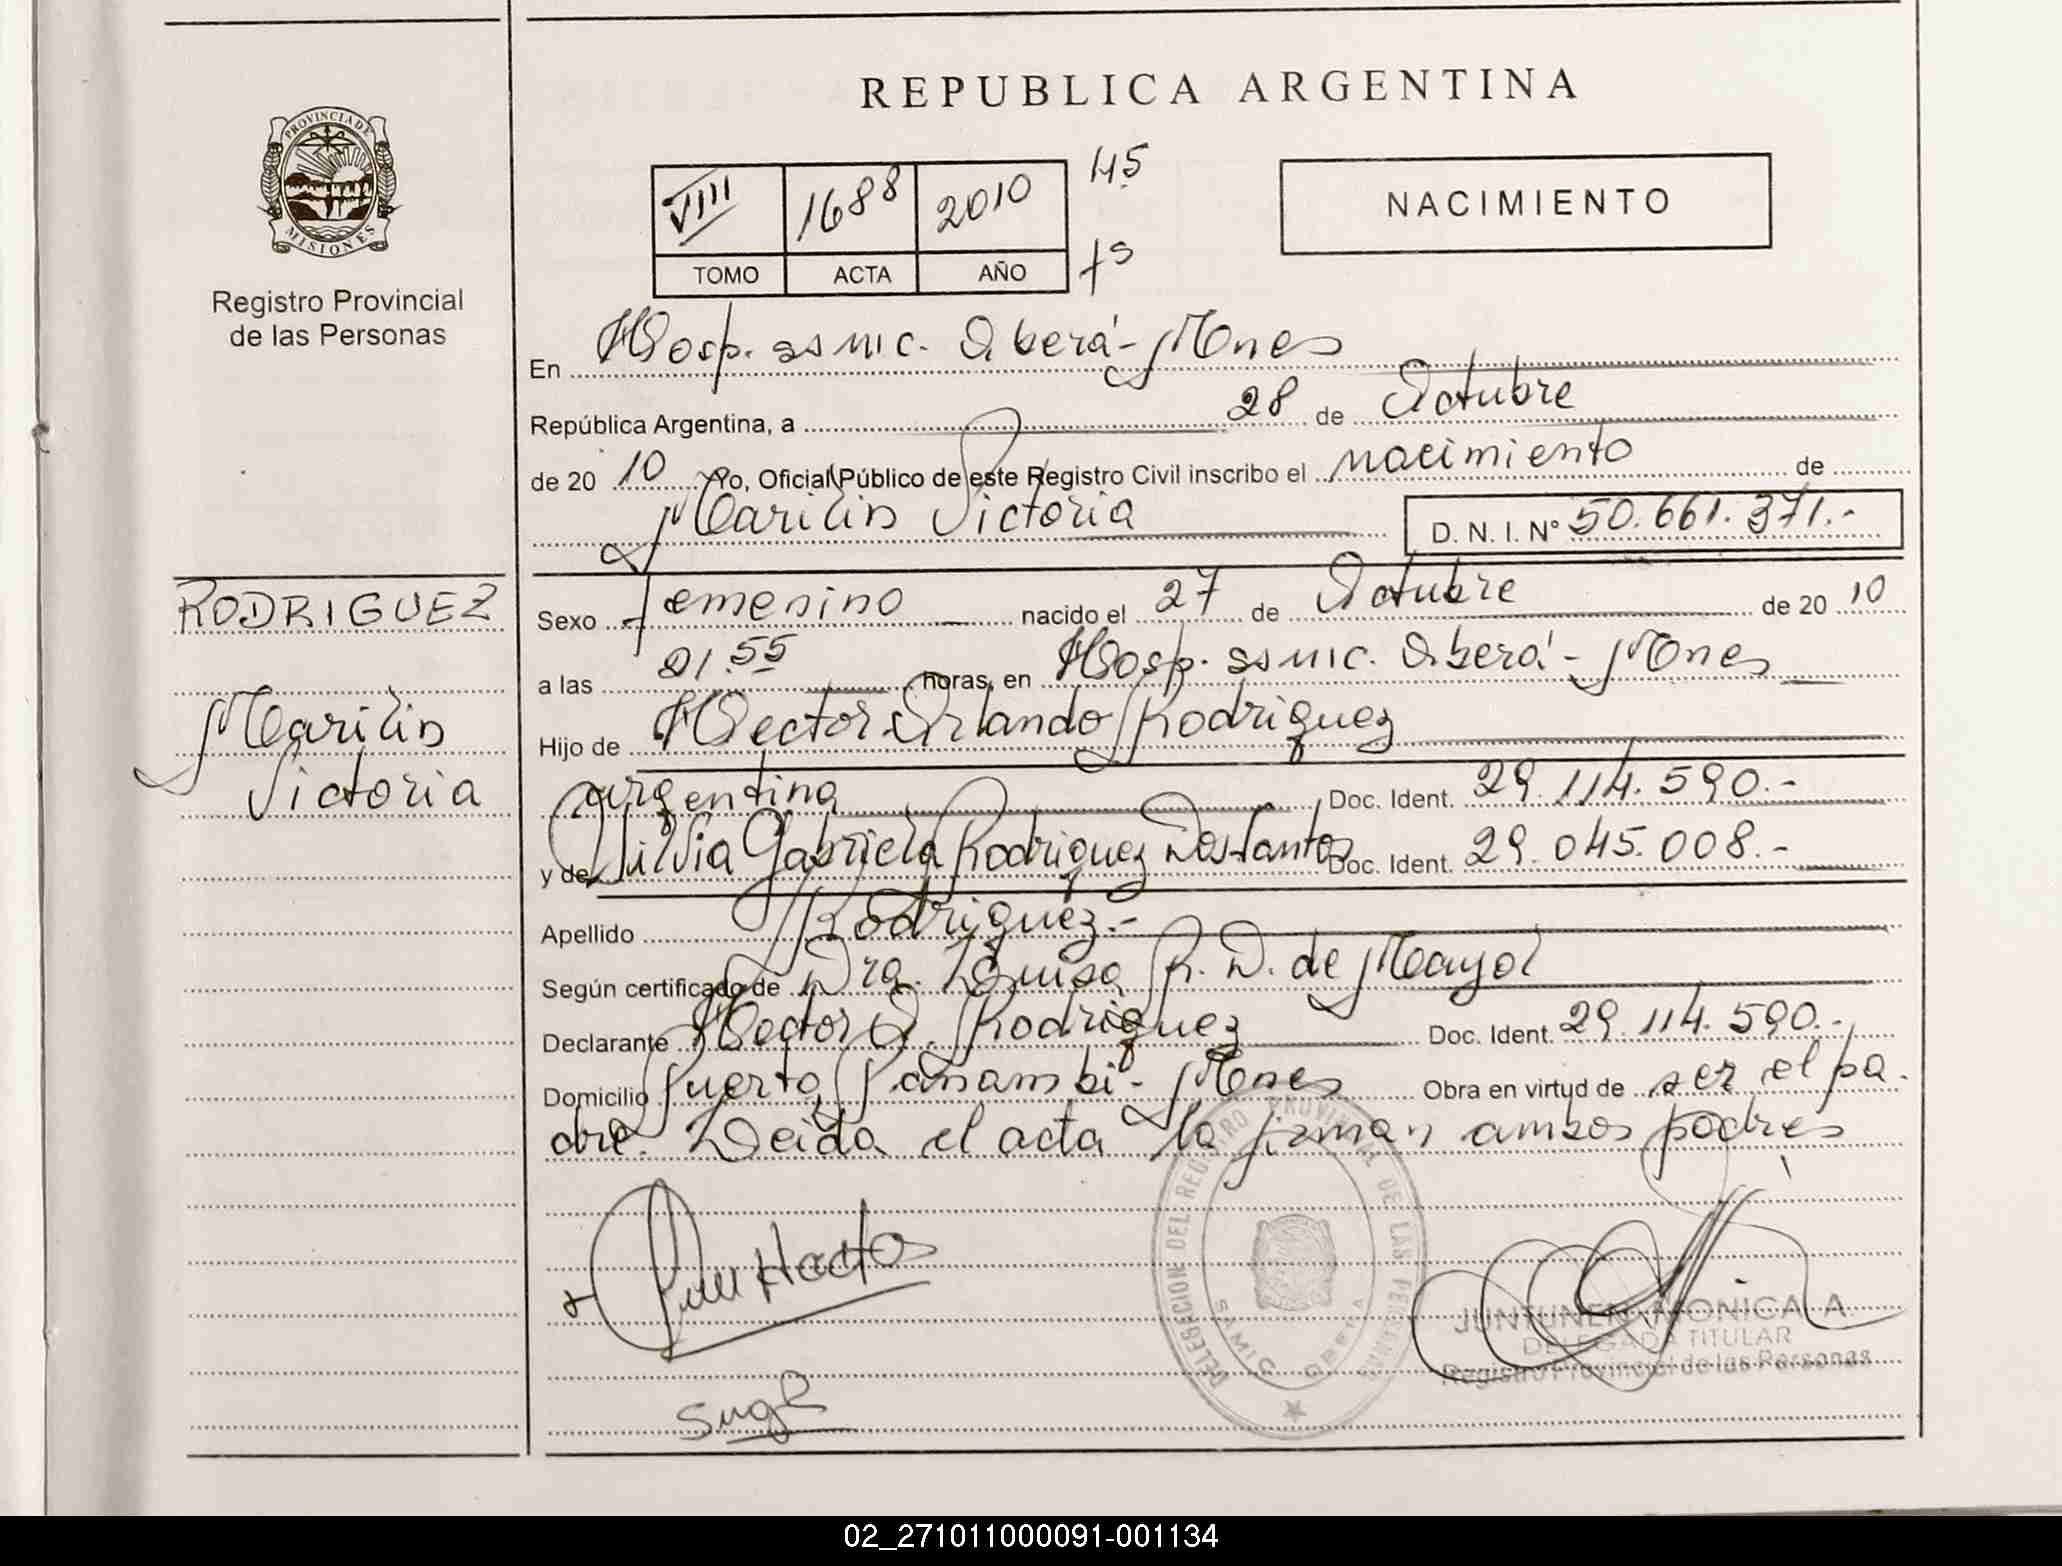 REPUBLICA ARGENTINA
PROVINCIA DE
MISIONES
Registro Provincial
de las Personas
VIII 1688 2010 45
TOMO ACTA AÑO fs
NACIMIENTO
En Hosp. SAMIC. Oberá - Mnes
República Argentina, a 28 de Octubre
de 2010 Yo, Oficial Público de este Registro Civil inscribo el nacimiento de
Marilin Victoria D. N. I. N° 50.661.371.-
RODRIGUEZ
Marilin
Victoria
Sexo femenino nacido el 27 de Octubre de 2010
a las 21.55 horas, en Hosp. SAMIC. Oberá - Mnes
Hijo de Hector Orlando Rodriguez
argentina Doc. Ident. 29.114.590.-
y de Silvia Gabriela Rodriguez Dos Santos Doc. Ident. 29.045.008.-
Apellido Rodriguez.-
Según certificado de Dra. Luisa R. D. de Mayol
Declarante Hector O. Rodriguez Doc. Ident. 29.114.590.-
Domicilio Puerto Panambi - Mnes Obra en virtud de ser el pa
dre. Leida el acta la firman ambos padres
DELEGACION DEL REGISTRO PROVINCIAL DE LAS PERSONAS
SAMIC OBERA
JUNTUNEN MONICA A.
DELEGADA TITULAR
Registro Provincial de las Personas
02_271011000091-001134